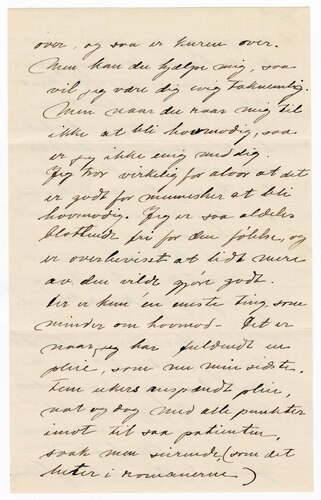 over, og saa er kuren over.
Men kan du hjælpe mig, saa
vil jeg være dig evig taknemlig.
Men naar du raar mig til
ikke at bli hovmodig, saa
er jeg ikke enig med dig.
Jeg tror virkelig for alvor at det
er godt for mennesker at bli
hovmodig. Jeg er saa aldeles
blottendt fri for den følelse, og
er overbeviset at lidt mere
av den vilde gjøre godt.
Der er kun én eneste ting, som
minder om hovmod - Det er
naar jeg har fuldendt en
pleie, som nu min sidste.
Fem ukers anspændt pleie,
nat og dag med alle
imot til saa patienten,
(som det
heter i romanerne)